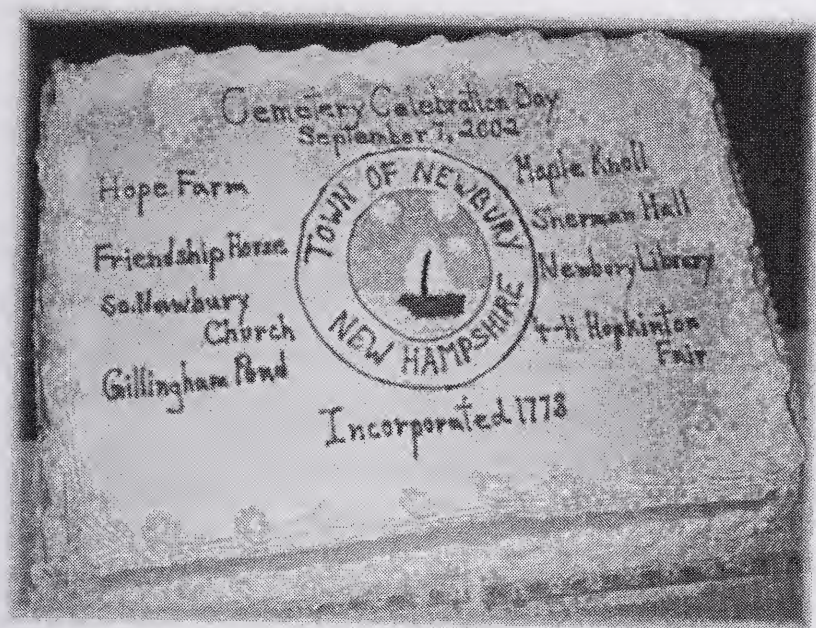 Cemetery Celebration Day
September 7, 2002
Hope Farm
Friendship House
So. Newbury
Church
Gillingham Pond
TOWN OF NEWBURY
NEW HAMPSHIRE
Maple Knoll
Sherman Hall
Newbury Library
4-H Hopkinton
Fair
Incorporated 1778